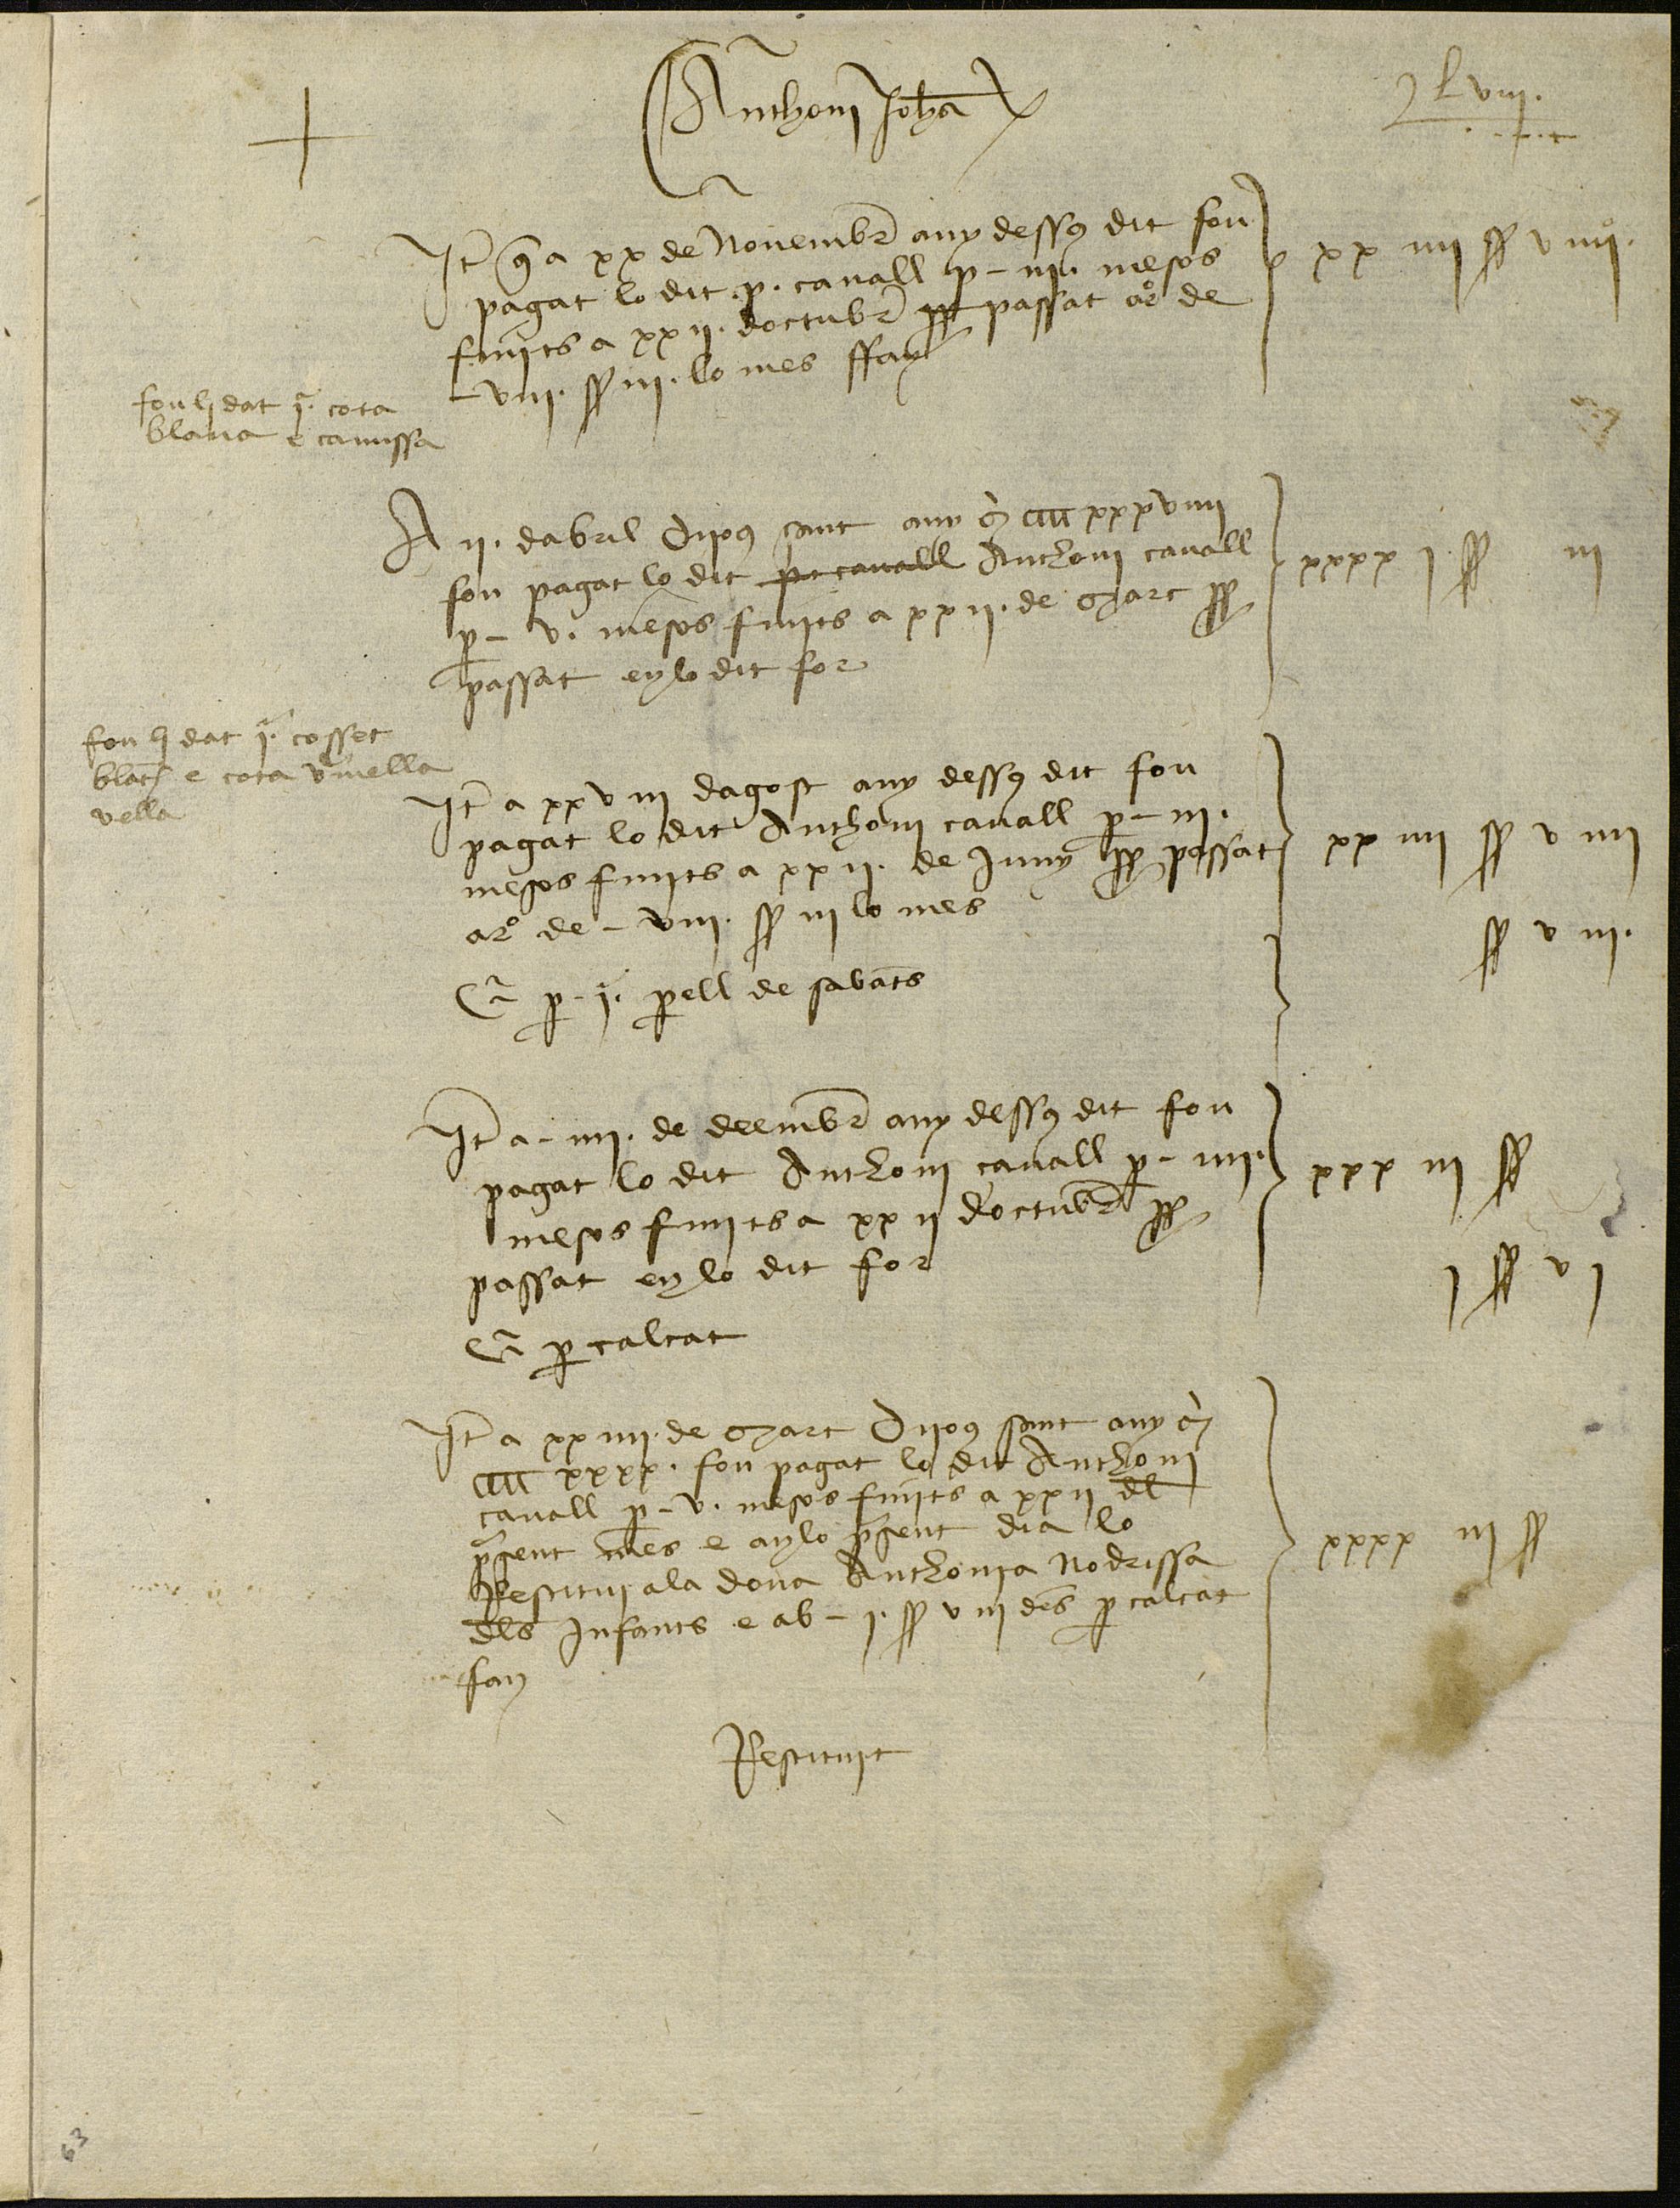 Anthoni Joha
L viiii
It q a xx de Nouembr any dessus dit fou
pagat lo dit .p. cauall p - iii. mesos
finits a xx ii. doctubr passat a ro de
- viii. ss iii. lo mes ffan
xx iiii ss v iiii
fou li dat i. cota
blaua e camissa
A ii. dabril Dijous sant any cccc xxxviiii
fou pagat lo dit Anthoni cauall
p - v. mesos finits a xx ii. de Març pp
passat en lo dit for
xxxx i ss iii
fou li dat i. cosset
blach e cota vmella
vella
It a xx v iii dagost any dessus dit fou
pagat lo dit Anthoni cauall p - iii.
mesos finits a xx ii. de Juny pp passat
a ro de - viii. ss iii lo mes
xx iiii ss v iiii
It p - i. pell de sabats
ss v iii.
It a - iiii. de deembr any dessus dit fou
pagat lo dit Anthoni cauall p - iiii.
mesos finits a xx ii doctubr pp
passat en lo dit for
xxx iii ss
It p calçat
i ss v i
It a xx iiii. de Març Dijous sant any
cccc xxxx. fou pagat lo dit Anthoni
cauall p - v. mesos finits a xx ii dl
psent mes e en lo psent dia lo
Restitui ala dona Anthonia Nodrissa
dls Infants e ab - i. ss v iii ds p calçat
fan
xxxx iii ss
Restituit
63